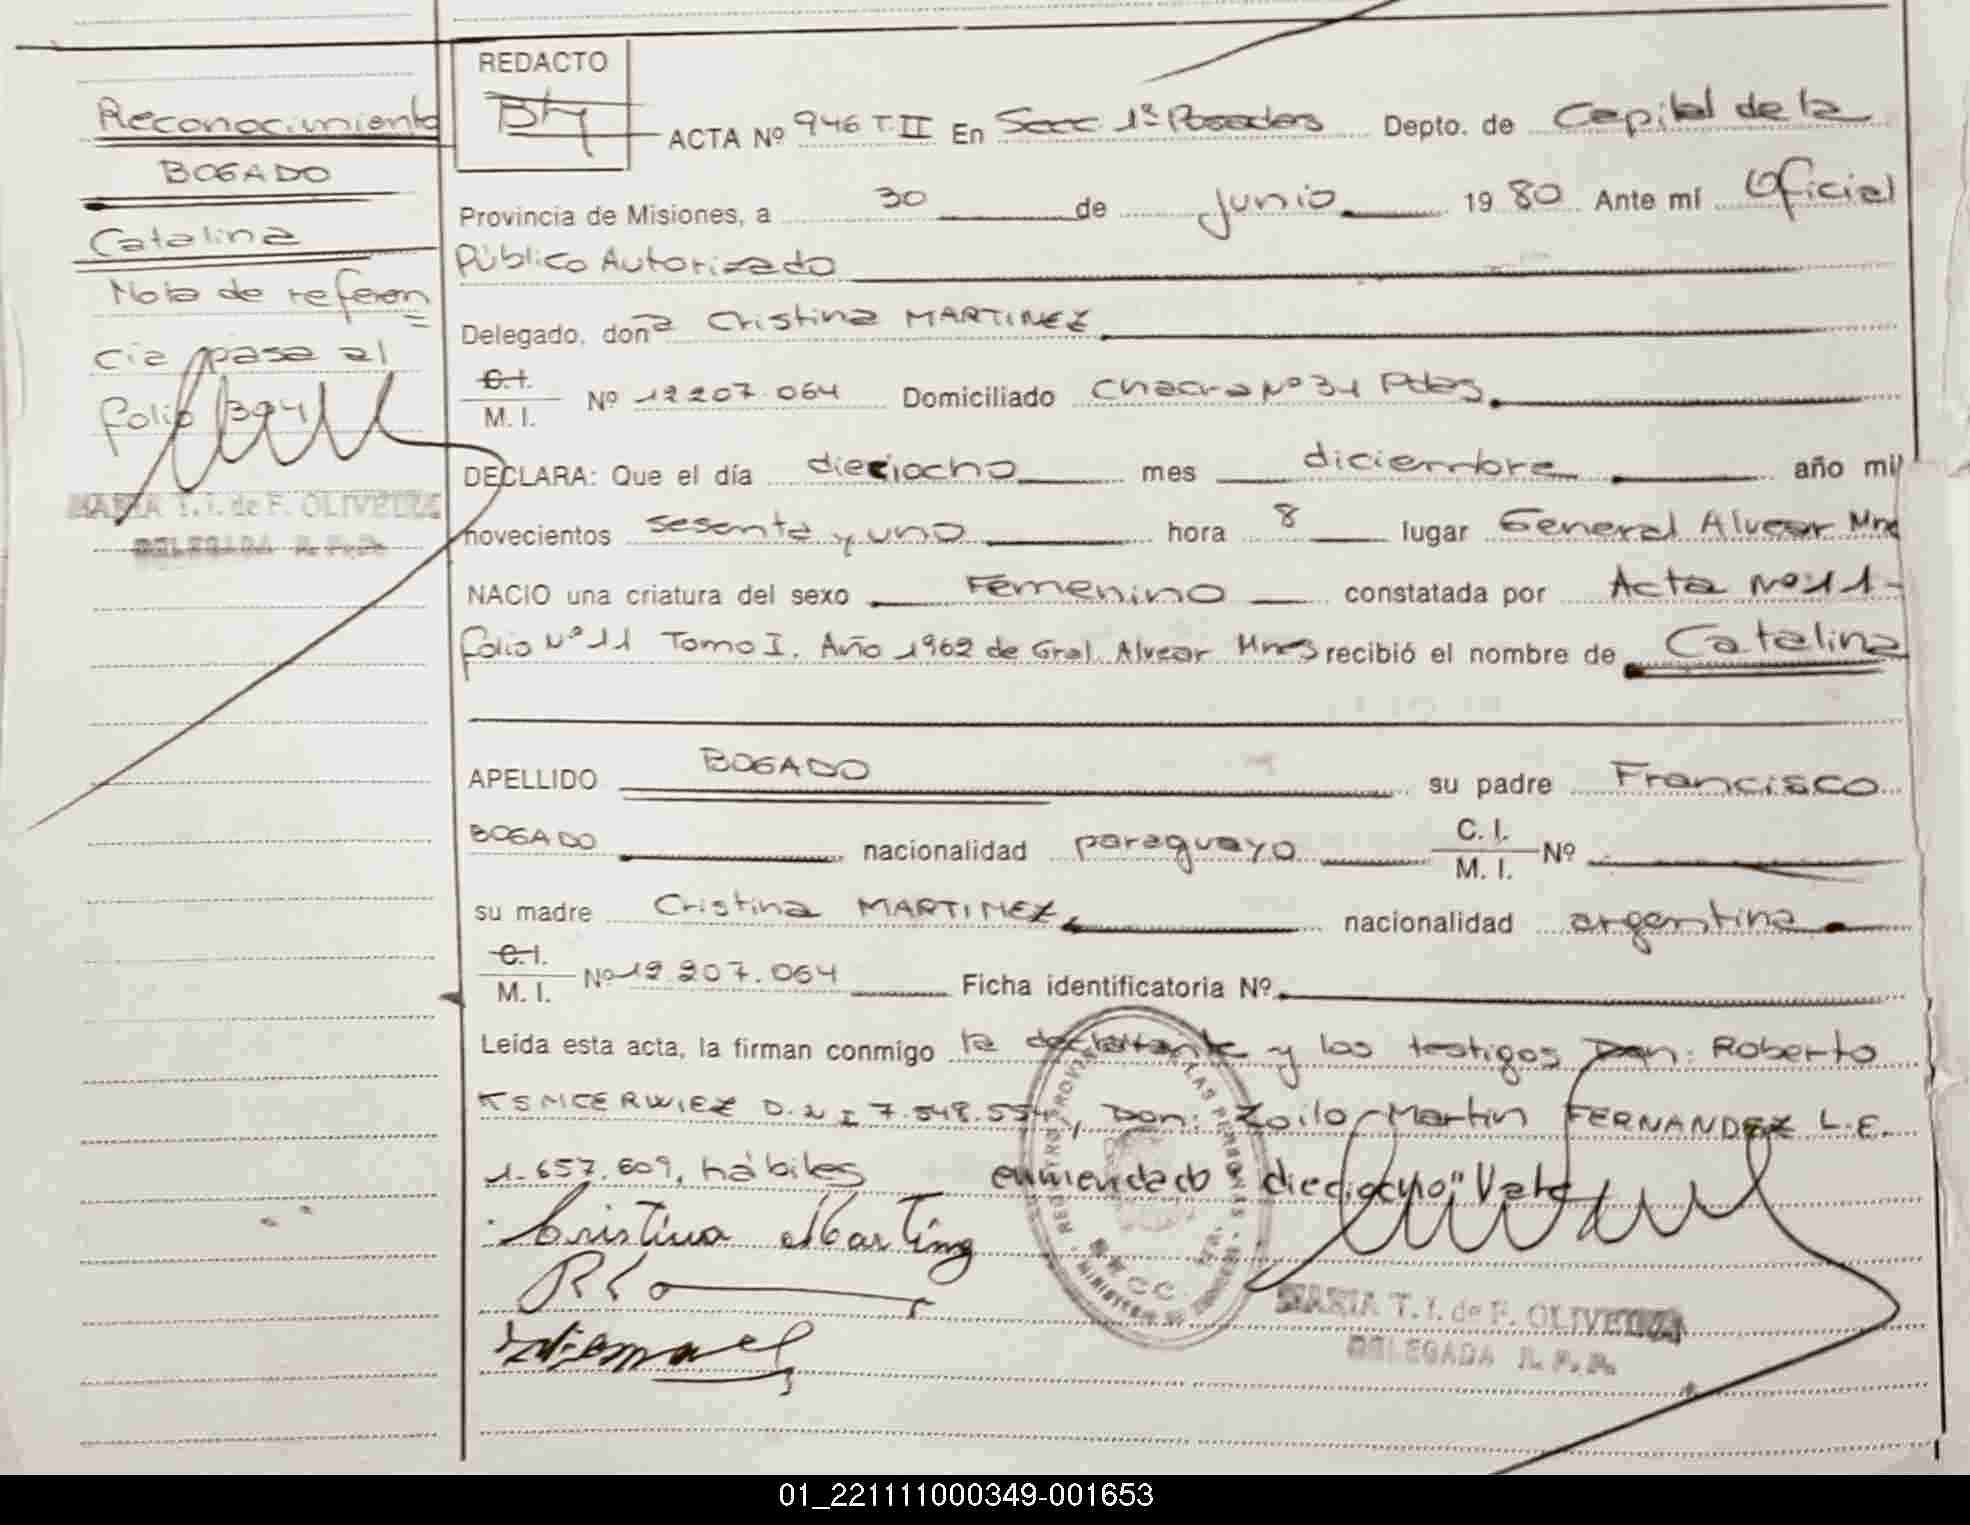 Reconocimiento
BOGADO
Catalina
Nota de referen
=
cia pasa al
folio 394
MARIA T. I. de F. OLIVEIRA
DELEGADA R. P. P.
REDACTO
ACTA Nº 946 T. II En Secc. 1ª Posadas Depto. de Capital de la
Provincia de Misiones, a 30 de junio 1980 Ante mí Oficial
Público Autorizado
Delegado, donª Cristina MARTINEZ
C.I.
M. I. Nº 12 207.064 Domiciliado Chacra Nº 31 Pdas
DECLARA: Que el día dieciocho mes diciembre año mil
novecientos sesenta y uno hora 8 lugar General Alvear Mnes
NACIO una criatura del sexo Femenino constatada por Acta Nº 11-
folio Nº 11 Tomo I. Año 1962 de Gral. Alvear Mnes recibió el nombre de Catalina
APELLIDO BOGADO su padre Francisco
BOGADO nacionalidad paraguayo C. I.
M. I. Nº
su madre Cristina MARTINEZ nacionalidad argentina
C.I.
M. I. Nº 12 207.064 Ficha identificatoria Nº
Leída esta acta, la firman conmigo la declarante y los testigos Don: Roberto
KSMCERWIEZ D.N I 7.548.554, Don: Zoilo Martin FERNANDEZ L.E.
1.657.609, hábiles enmendado dieciocho" Vale
Cristina Martinez
MARIA T. I. de F. OLIVEIRA
DELEGADA R. P. P.
01_221111000349-001653